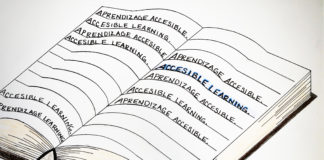 APRENDIZAGE ACCESIBLE.
ACCESIBLE LEARNING.
APRENDIZAGE ACCESIBLE.
ACCESIBLE LEARNING.
ACCESIBLE LEARNING,
PRENDIZAGE LEARNING.
APRENDIZAGE ACCESIBLE.
ACCESIBLE LEARNING.
ACCESIBLE LEARNING.
APRENDIZAGE ACCESIBLE.
ACCESIBLE LEARNING.
APRENDIZAGE ACCESIBLE.